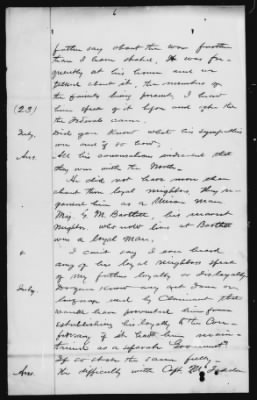 6
further say about the war further
than I have stated. He was fre-
quently at his home and we
talked about it, the members of
the family being present, I have
him speak of it before and after that
the Federals came.
(23)
Inty. Did you know what his sympathies
were and if so how.
Ans. All his conversation indicated that
they were with the North.
He did not have more than
about three loyal neighbors, they re-
garded him as a Union man
Maj. G. M. Bartlett, his nearest
neighbor, who now lives at Bartlett
was a loyal man.
I can't say I ever heard
any of his loyal neighbors speak
of my father's loyalty or disloyalty
Inty. Do you know any act done or
language used by Claimant that
would have prevented him from
establishing his loyalty to the Con-
federacy if it had been main-
tained as a separate Government?
If so state the same fully.
Ans. His difficulty with Capt. Mc